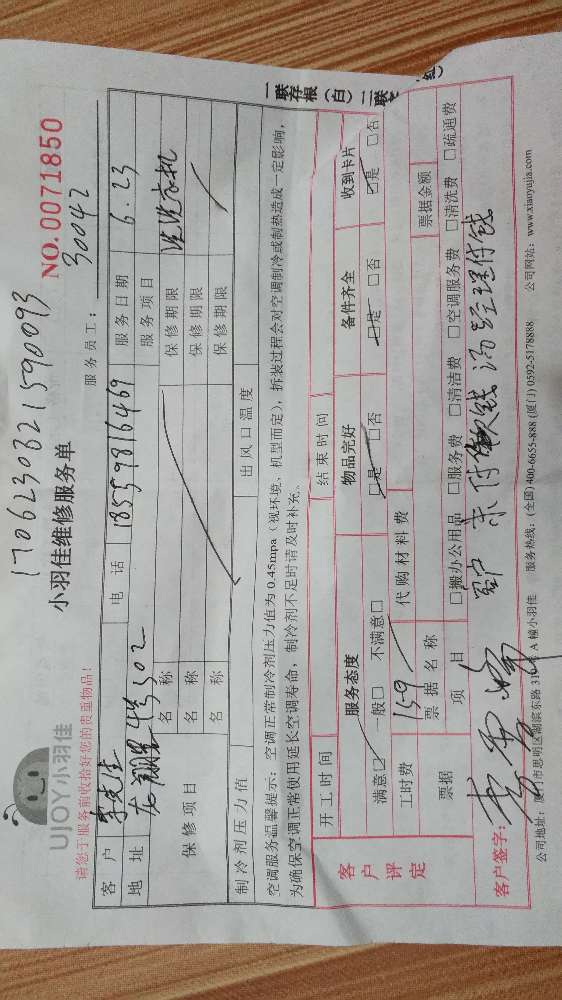 1706230321590093
小羽佳维修服务单 NO.0071850
UJOY小羽佳
请您于服务前收拾好您的贵重物品! 服务员工: 30042
客户 李先生 电话 18559816469 服务日期 6.23
地址 4号502 服务项目 洗衣机
保修项目 名称 保修期限
名称 保修期限
名称 保修期限
制冷剂压力值 出风口温度
空调服务温馨提示:空调正常制冷剂压力值为0.45mpa(视环境、机型而定),拆装过程会对空调制冷或制热造成一定影响,
为确保空调正常使用延长空调寿命,制冷剂不足时请及时补充。
开工时间 结束时间
客户评定 服务态度 物品完好 备件齐全 收到卡片
满意☑ 一般□ 不满意□ ☑是 □否 ☑是 □否 ☑是 □否
工时费 159 代购材料费
票据 票据名称 票据金额
项目 □搬办公用品 □服务费 □清洁费 □空调服务费 □清洗费 □疏通费
客户签字: 客户未付钱 经理付钱
公司地址:厦门市思明区湖滨东路319号A幢小羽佳 服务热线:(全国)400-6655-888 (厦门)0592-5178888 公司网站:www.xiaoyujia.com
一联存根(白)二联
红)